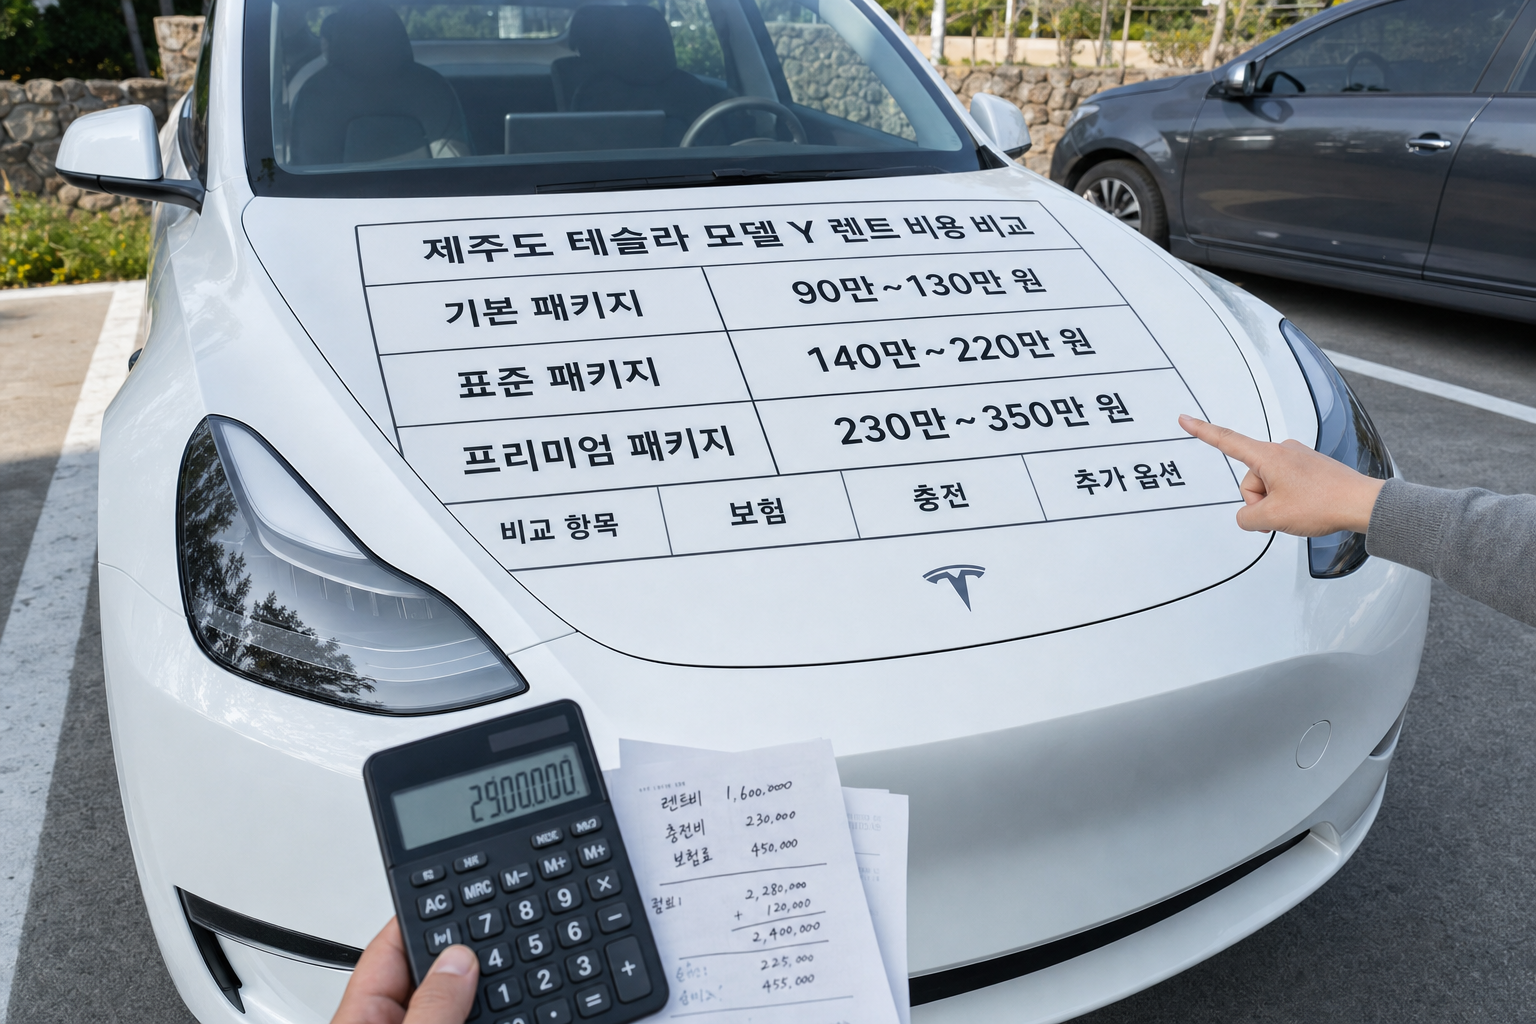 제주도 테슬라 모델 Y 렌트 비용 비교
기본 패키지 90만~130만 원
표준 패키지 140만~220만 원
프리미엄 패키지 230만~350만 원
비교 항목 보험 충전 추가 옵션
2900.000.
렌트비 1,600.000
충전비 230,000
보험료 450,000
2,280,000
+ 120,000
2,400,000
225,000
455,000
AC MRC M- M+ M+
7 8 9 ×
4 5 6 −
1 2 3 +
. =